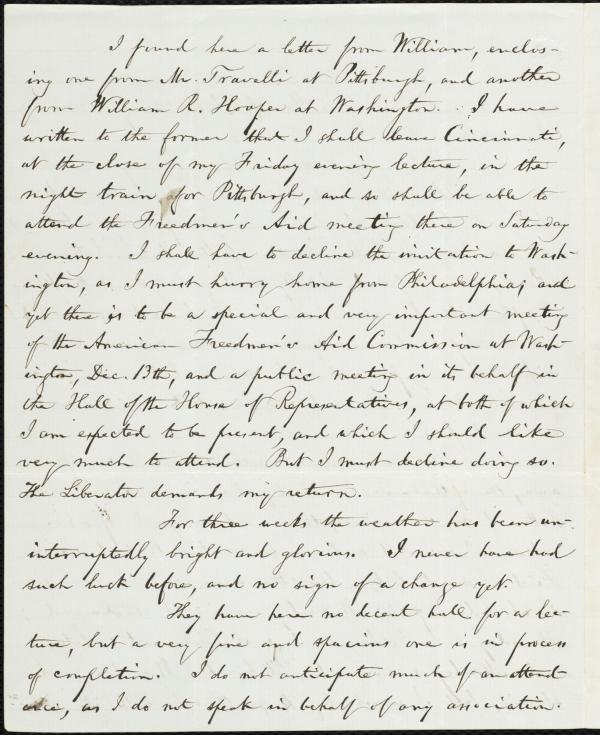 I found here a letter from William, enclos-
ing one from Mr. Travelli at Pittsburgh, and another
from William R. Hooper at Washington. I have
written to the former that I shall leave Cincinnati,
at the close of my Friday evening lecture, in the
night train for Pittsburgh, and so shall be able to
attend the Freedmen's Aid meeting there on Saturday
evening. I shall have to decline the invitation to Wash-
ington, as I must hurry home from Philadelphia; and
yet there is to be a special and very important meeting
of the American Freedmen's Aid Commission at Wash-
ington, Dec. 13th, and a public meeting in its behalf in
the Hall of the House of Representatives, at both of which
I am expected to be present, and which I should like
very much to attend. But I must decline doing so.
The Liberator demands my return.
For three weeks the weather has been un-
interruptedly bright and glorious. I never have had
such luck before, and no sign of a change yet.
They have here no decent hall for a lec-
ture, but a very fine and spacious one is in process
of completion. I do not anticipate much of an attend
ance, as I do not speak in behalf of any association.